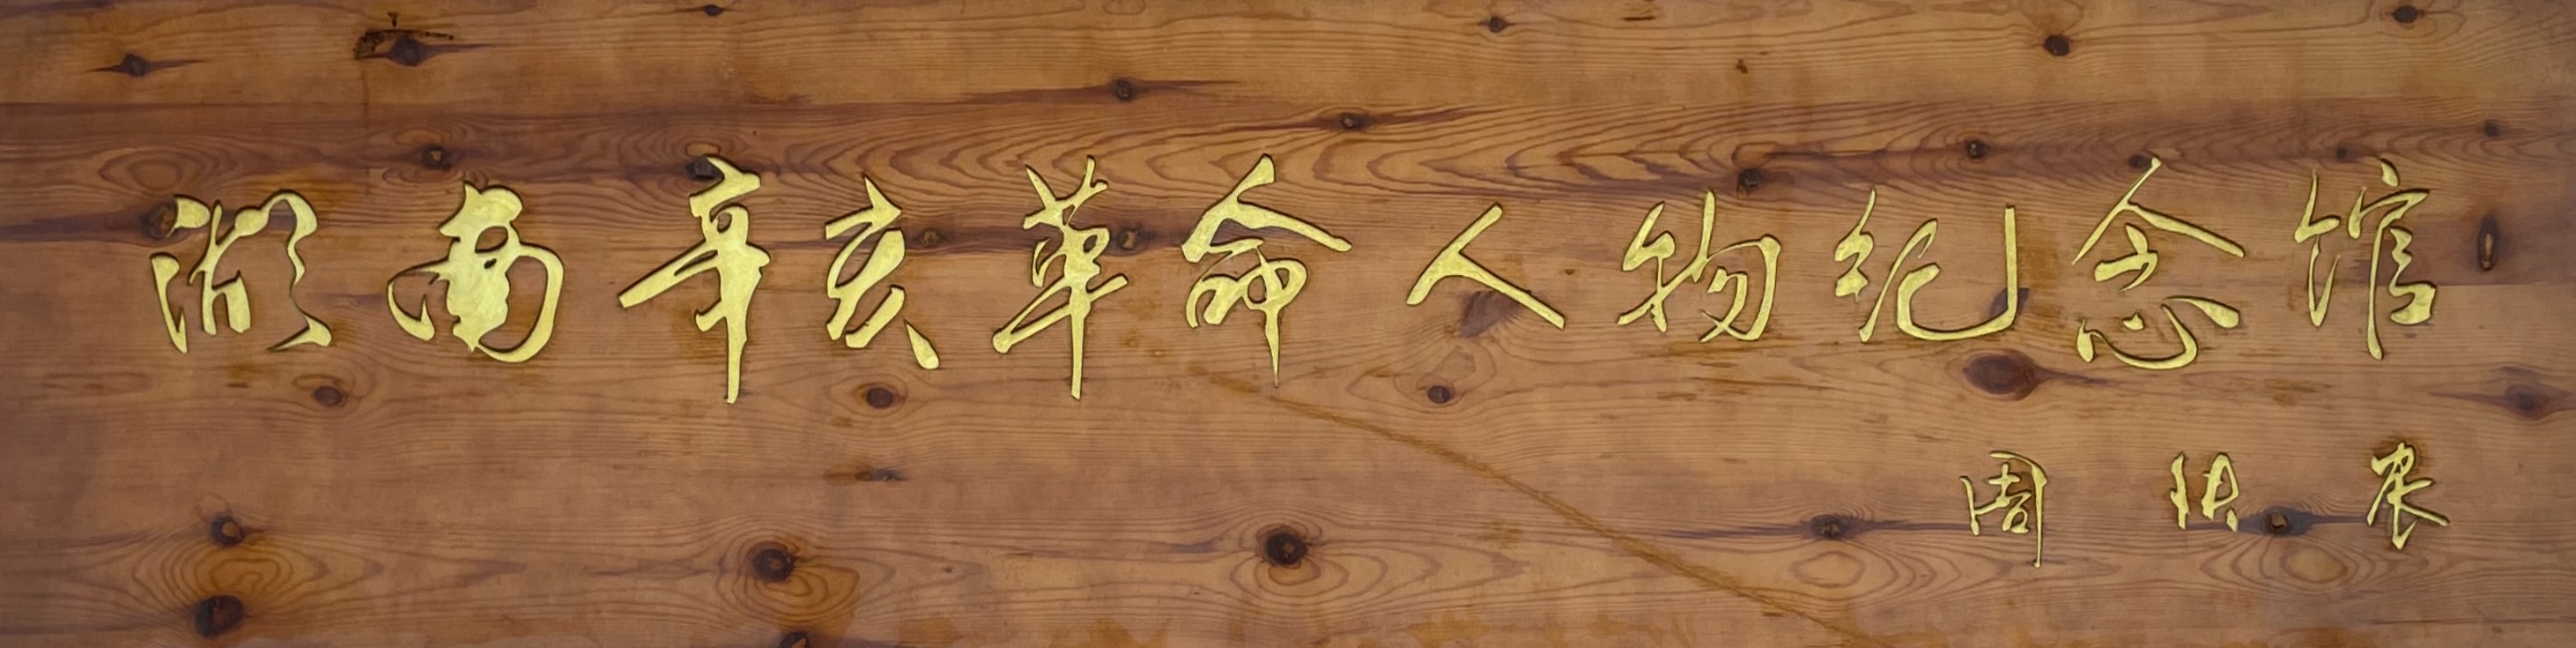 湖南辛亥革命人物纪念馆
周铁农